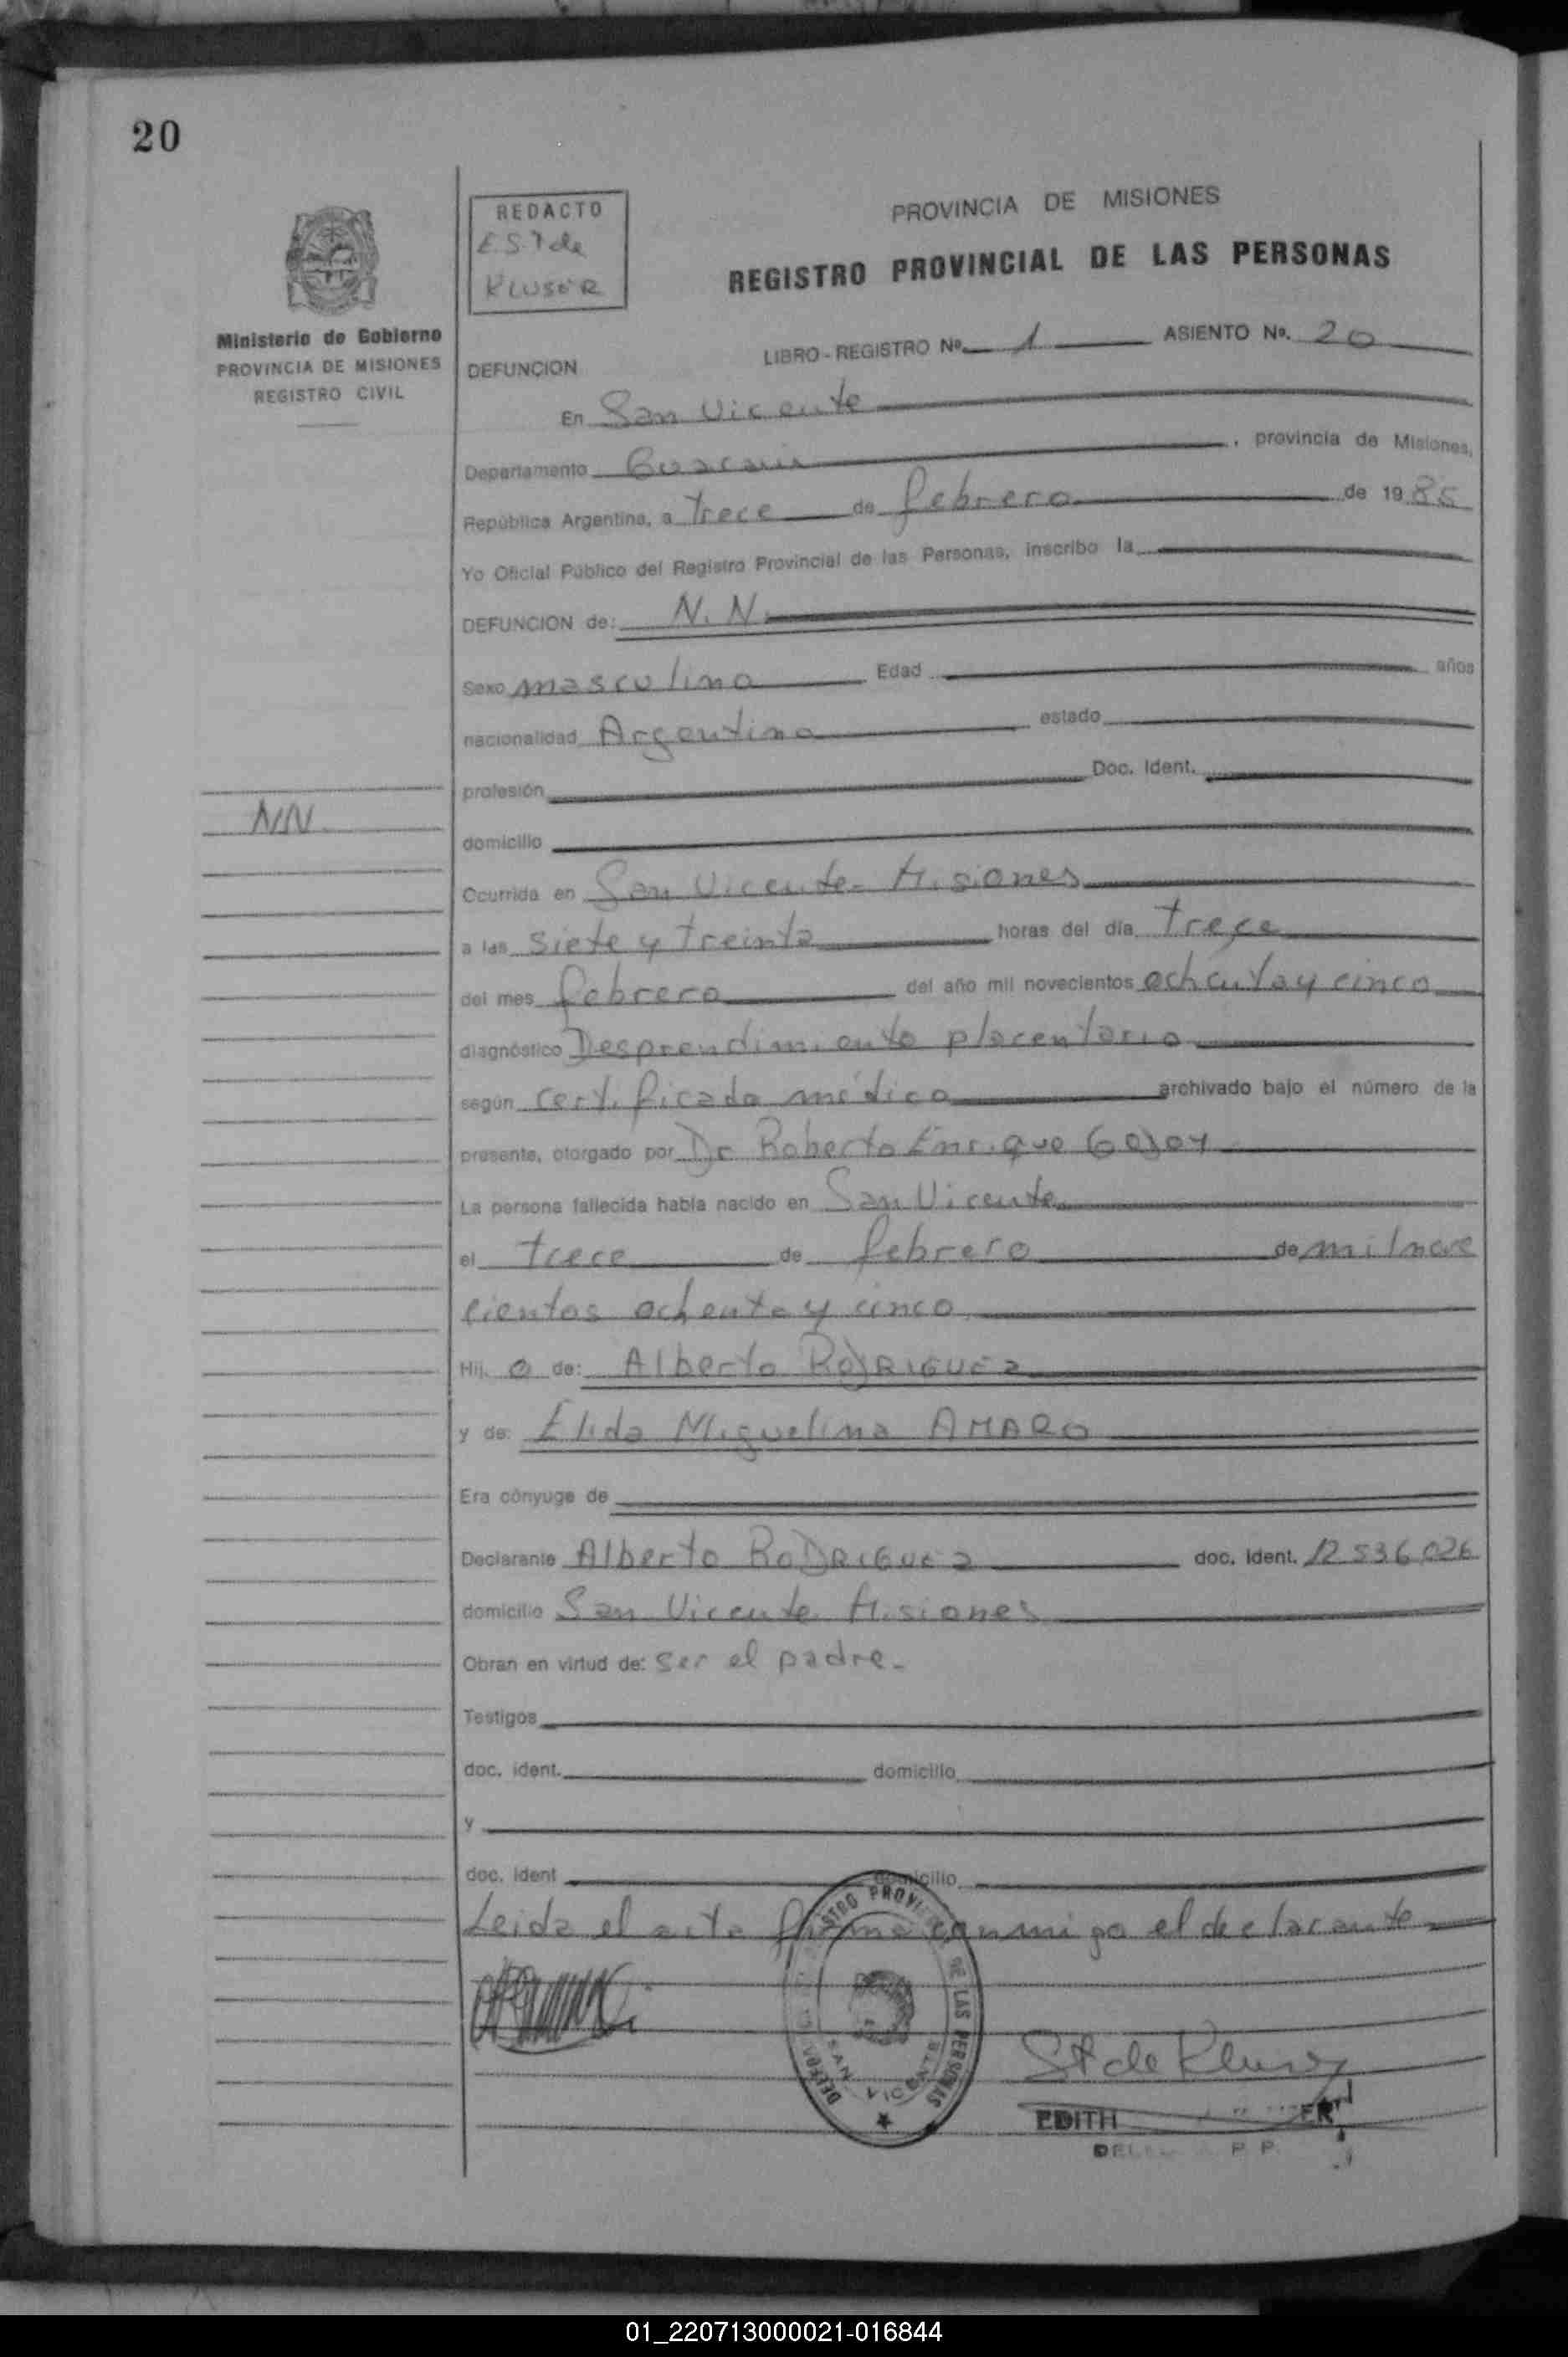 20
REDACTO
E.S.T de
KLUSER
PROVINCIA DE MISIONES
REGISTRO PROVINCIAL DE LAS PERSONAS
Ministerio de Gobierno
PROVINCIA DE MISIONES
REGISTRO CIVIL
LIBRO - REGISTRO Nº. 1 ASIENTO Nº. 20
DEFUNCION
En San Vicente
Departamento Guaraní, provincia de Misiones,
República Argentina, a trece de febrero de 1985
Yo Oficial Público del Registro Provincial de las Personas, inscribo la
DEFUNCION de: N. N
Sexo masculino Edad años
nacionalidad Argentina estado
profesión Doc. Ident.
NN
domicilio
Ocurrida en San Vicente - Misiones
a las siete y treinta horas del día trece
del mes febrero del año mil novecientos ochenta y cinco
diagnóstico Desprendimiento placentario
según certificado médico archivado bajo el número de la
presente, otorgado por Dr Roberto Enrique Godoy
La persona fallecida había nacido en San Vicente
el trece de febrero de mil nove
cientos ochenta y cinco
Hij o de: Alberto RODRIGUEZ
y de: Elida Miguelina AMARO
Era cónyuge de
Declarante Alberto RODRIGUEZ doc. ident. 12.536.026
domicilio San Vicente Misiones
Obran en virtud de: ser el padre.-
Testigos
doc. ident. domicilio
y
doc. ident domicilio
Leida el acta firma conmigo el declarante
PROVI DE LAS PERSONAS
SAN VICENTE
St de Kluser
EDITH ER
P P
01_220713000021-016844